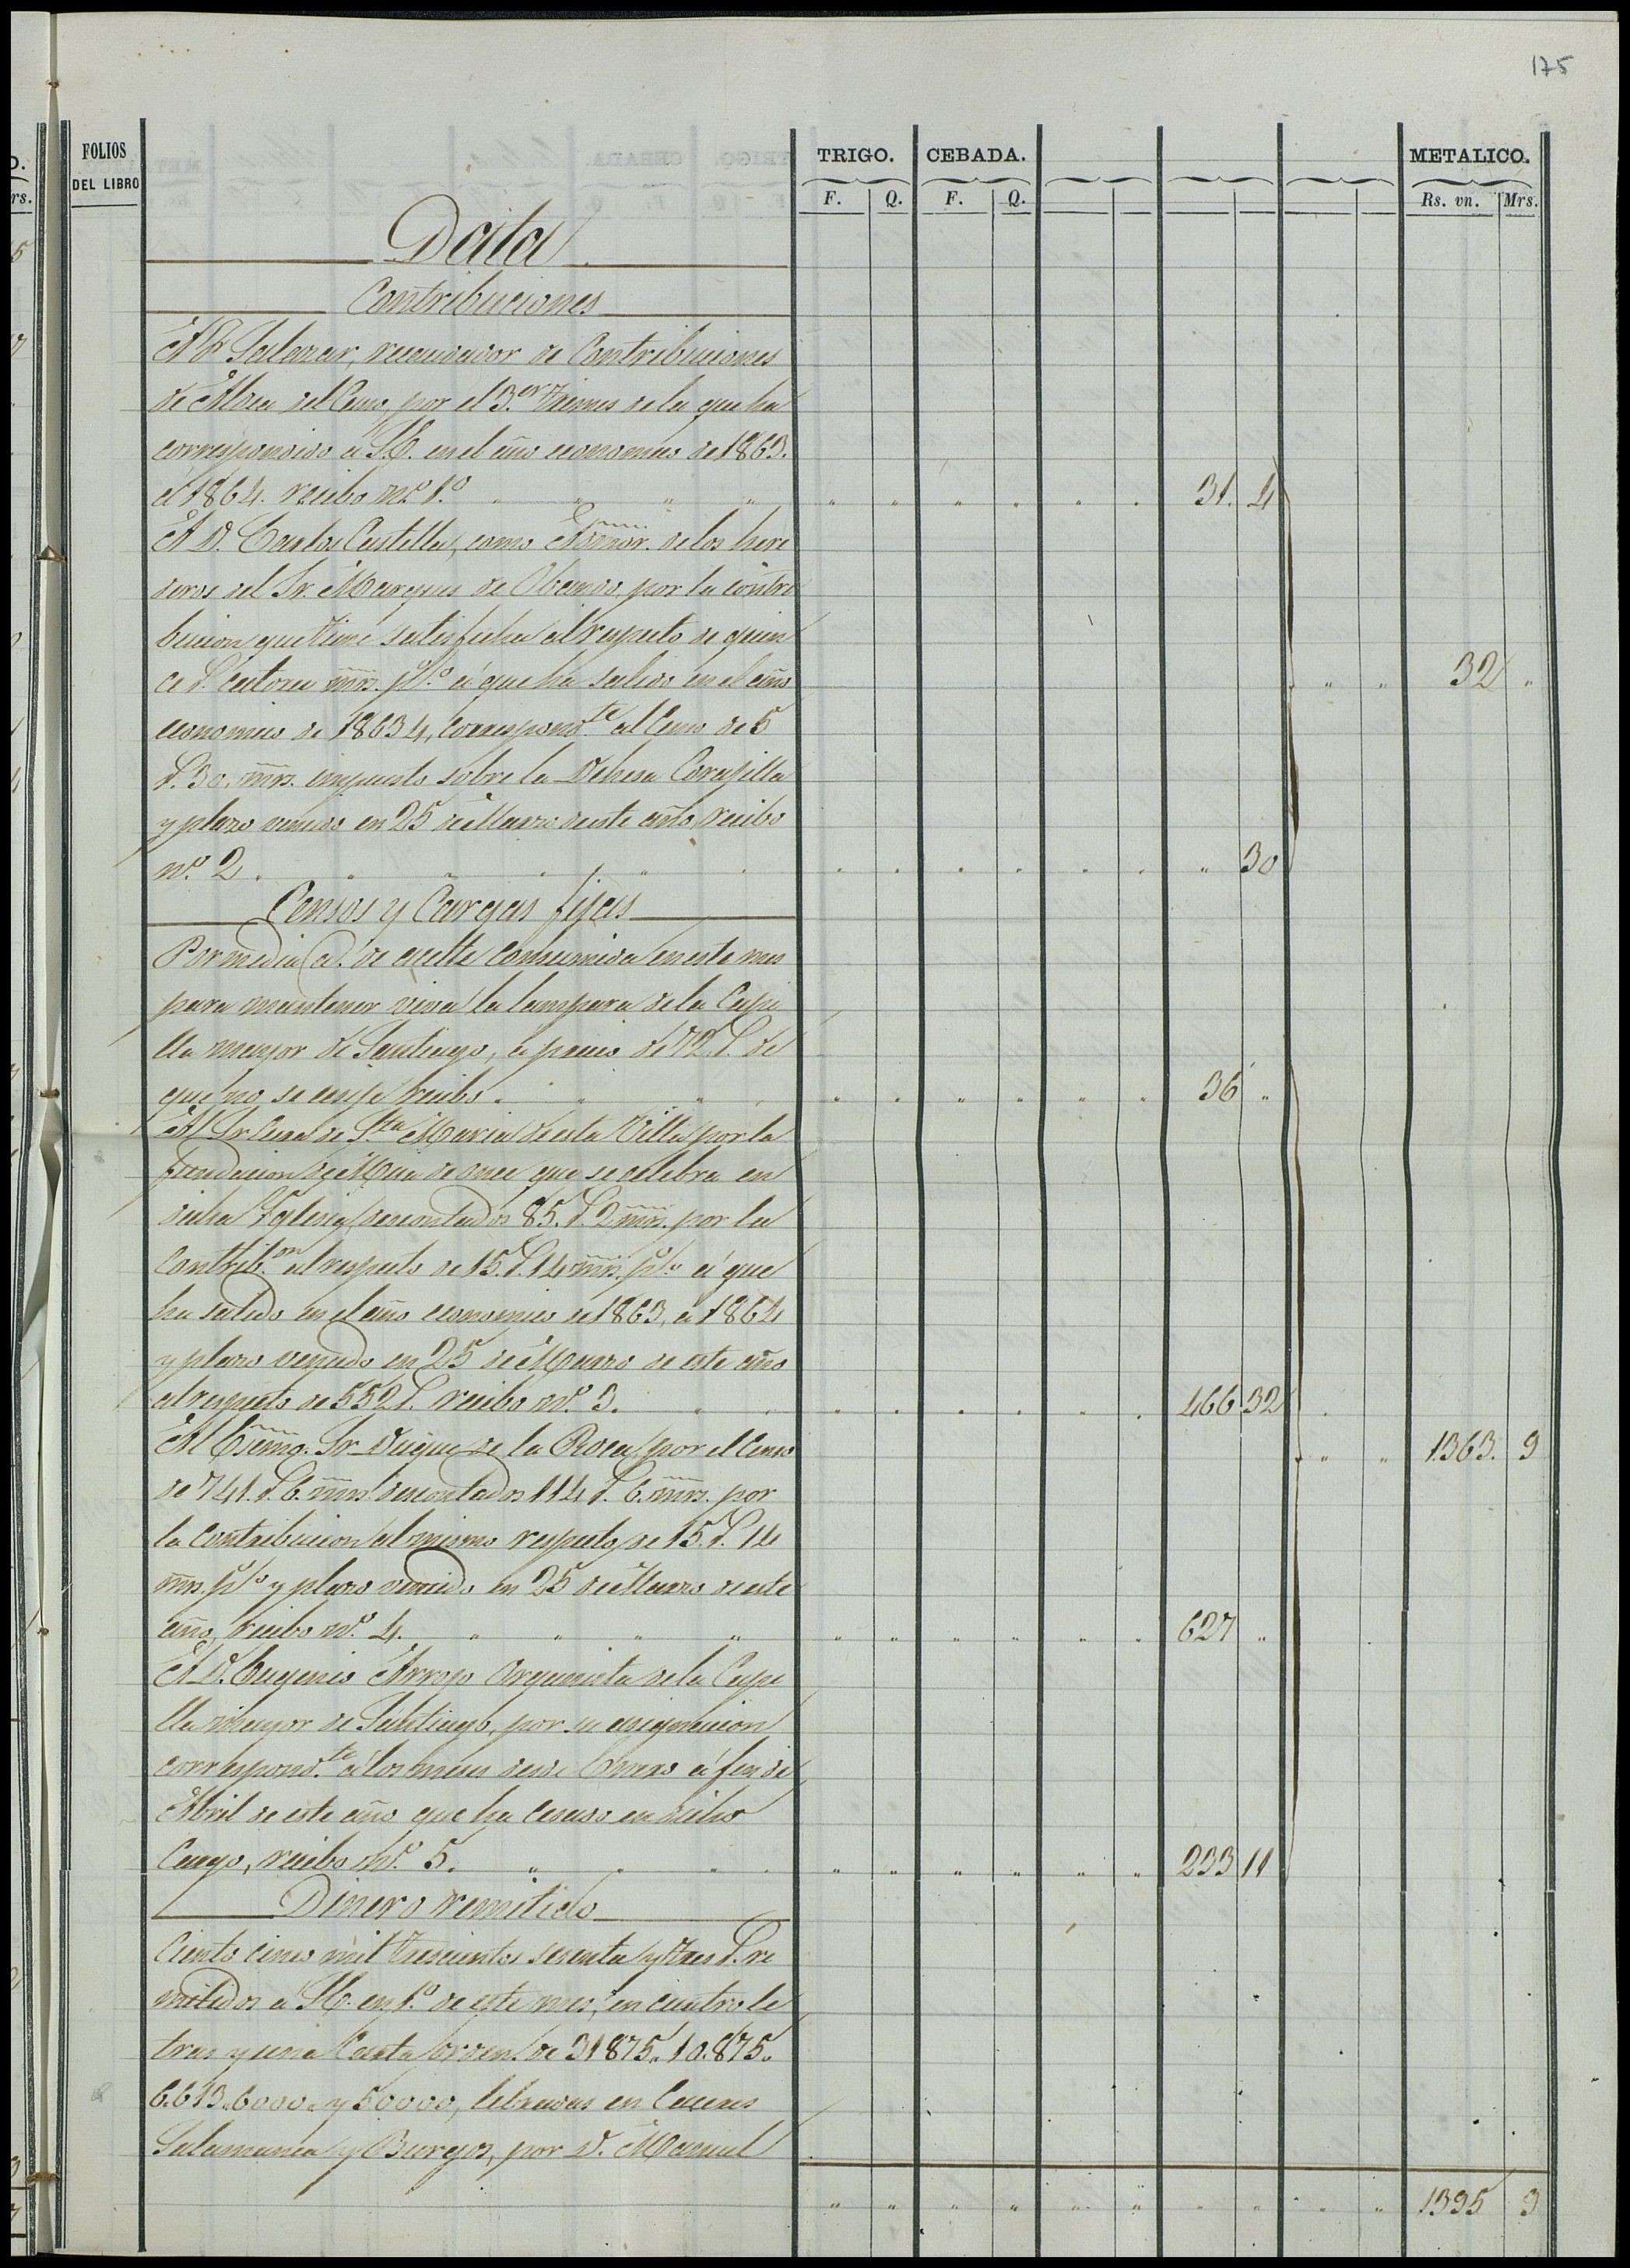 175
FOLIOS DEL LIBRO
TRIGO. CEBADA. METALICO.
F. Q. F. Q. Rs. vn. Mrs.
Data
Contribuciones
A P. Salazar, recaudador de Contribuciones
de Aldea del Cano por el 3.er Trimes de la que ha
correspondido a S.E. en el año economico de 1863.
á 1864. recibo n.º 1.º 31. 4
A D. Carlos Castilla, como Admor. de los here
deros del Sr. Marques de Obando, por la contri
bucion que tiene satisfecha al respecto de quin
ce r.s catorce mrs. p%. á que ha salido en el año 32 "
economico de 1863 4, correspond.te al Censo de 5
r.s 30. mrs. impuesto sobre la Dehesa Corapilla
y plazo vencido en 25 de Marzo de este año, recibo
n.º 2 " 30
Censos y Cargas fijas
Por media @. de aceite consumida en este mes
para mantener viva la lampara de la Capi
lla mayor de Santiago, a precio de 72. r.s de
que no se exije recibo. 36 "
Al Sr. Cura de S.ta Maria de esta Villa por la
fundacion de Misa de once que se celebra en
dicha Yglesia, descontados 85. r.s 2 mrs. por la
Contrib.on al respecto de 15. r.s 14 mrs. p%. á que
ha salido en el año economico de 1863, a 1864
y plazo vencido en 25 de Marzo de este año
al respecto de 552 r.s recibo n.º 3. 466 32
Al Exmo. Sr. Duque de la Roca, por el Censo 1363. 9
de 741. r.s 6. mrs. descontados 114 r.s 6. mrs. por
la Contribucion al mismo respecto de 15. r.s 14
mrs. p%. y plazo vencido en 25 de Marzo de este
año, recibo n.º 4. 627 "
A D. Eugenio Arroyo Organista de la Capi
lla mayor de Santiago, por su asignacion
correspond.te á los meses desde Enero á fin de
Abril de este año que ha cesado en dicho
Cargo, recibo n.º 5. 233 11
Dinero remitido
Ciento cinco mil trescientos sesenta y tres r.s re
mitidos a S.E. en 1.º de este mes, en cuatro le
tras y una Carta orden. de 31875. 10.875.
6.613. 6000. y 50000, libradas en Caceres
Salamanca y Burgos, por D. Manuel
1395 9